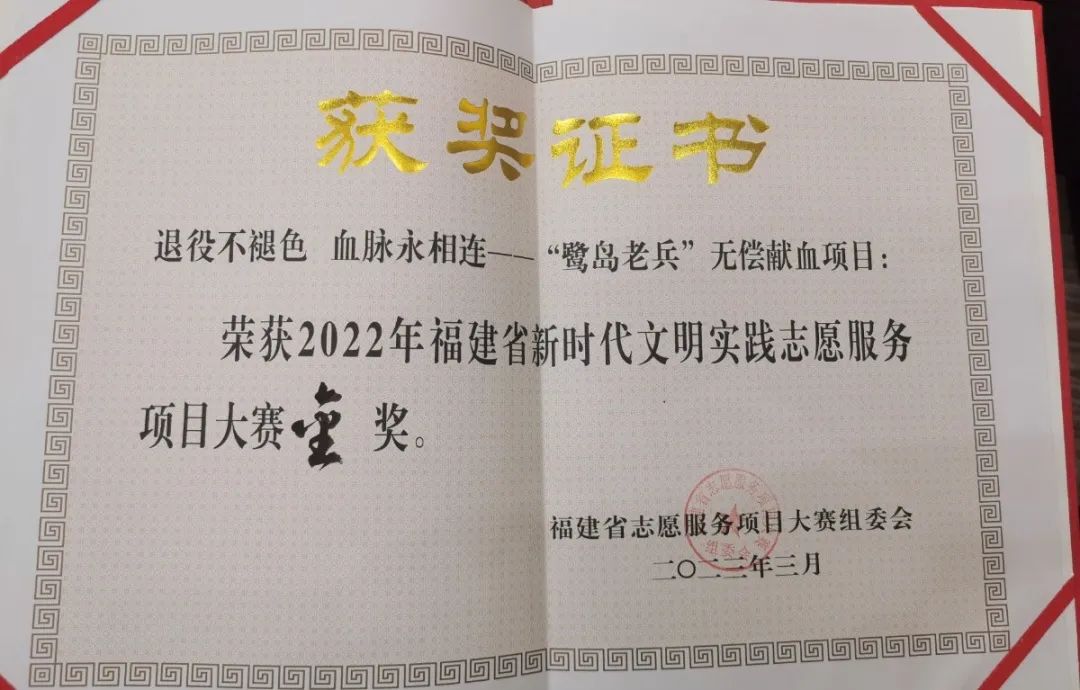 获奖证书
退役不褪色 血脉永相连——“鹭岛老兵”无偿献血项目：
荣获2022年福建省新时代文明实践志愿服务
项目大赛金奖。
福建省志愿服务项目大赛组委会
二〇二三年三月